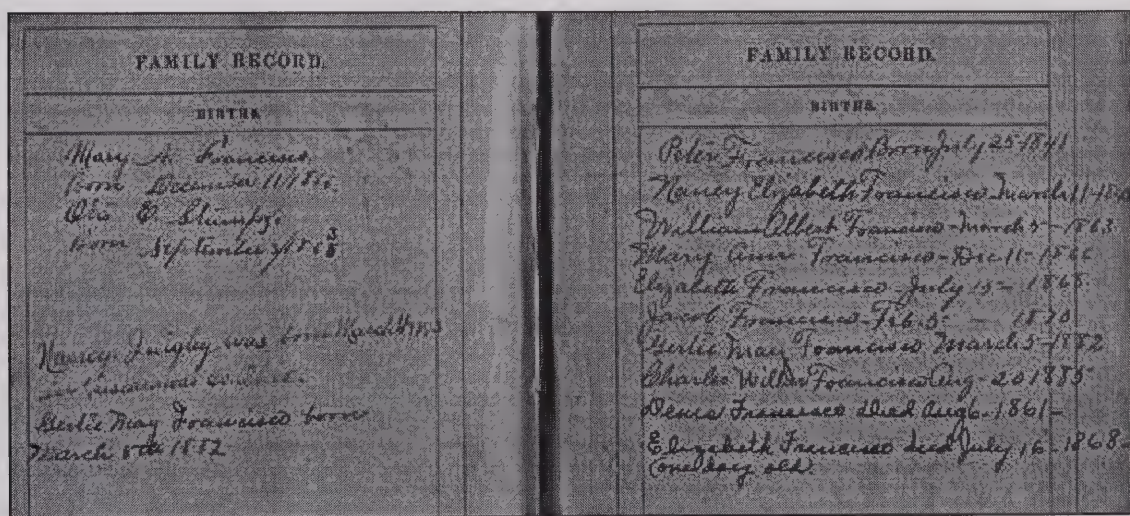 FAMILY RECORD.
BIRTHS.
Mary A. Francisco.
born December 11 / 186
Otis O. Stumpf.
born September
Nancy Quigley was born March
Gertie May Francisco born
March 5th 1882
FAMILY RECORD.
BIRTHS.
Peter Francisco Born July 25-1841
Nancy Elizabeth Francisco - March 11-18
William Albert Francisco - March 5 - 1863
Mary Ann Francisco - Dec 11 - 1866
Elizabeth Francisco - July 15 - 1868
Jacob Francisco - Feb. 5 - 1870
Gertie May Francisco March 5 - 1882
Charles Francisco Aug - 20 1885
Francisco died Aug 6 - 1861 -
Elizabeth Francisco died July 16 - 1868 -
(one day old)